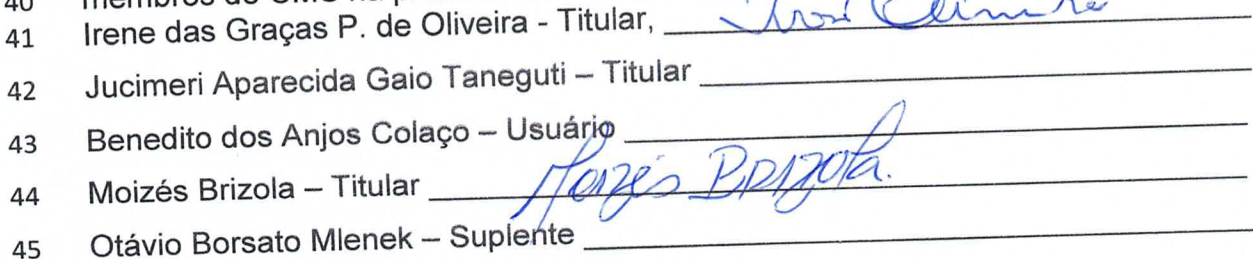 40 membros do CMS na
41 Irene das Graças P. de Oliveira - Titular,
42 Jucimeri Aparecida Gaio Taneguti – Titular
43 Benedito dos Anjos Colaço – Usuário
44 Moizés Brizola – Titular Moizés BRIZOla.
45 Otávio Borsato Mlenek – Suplente